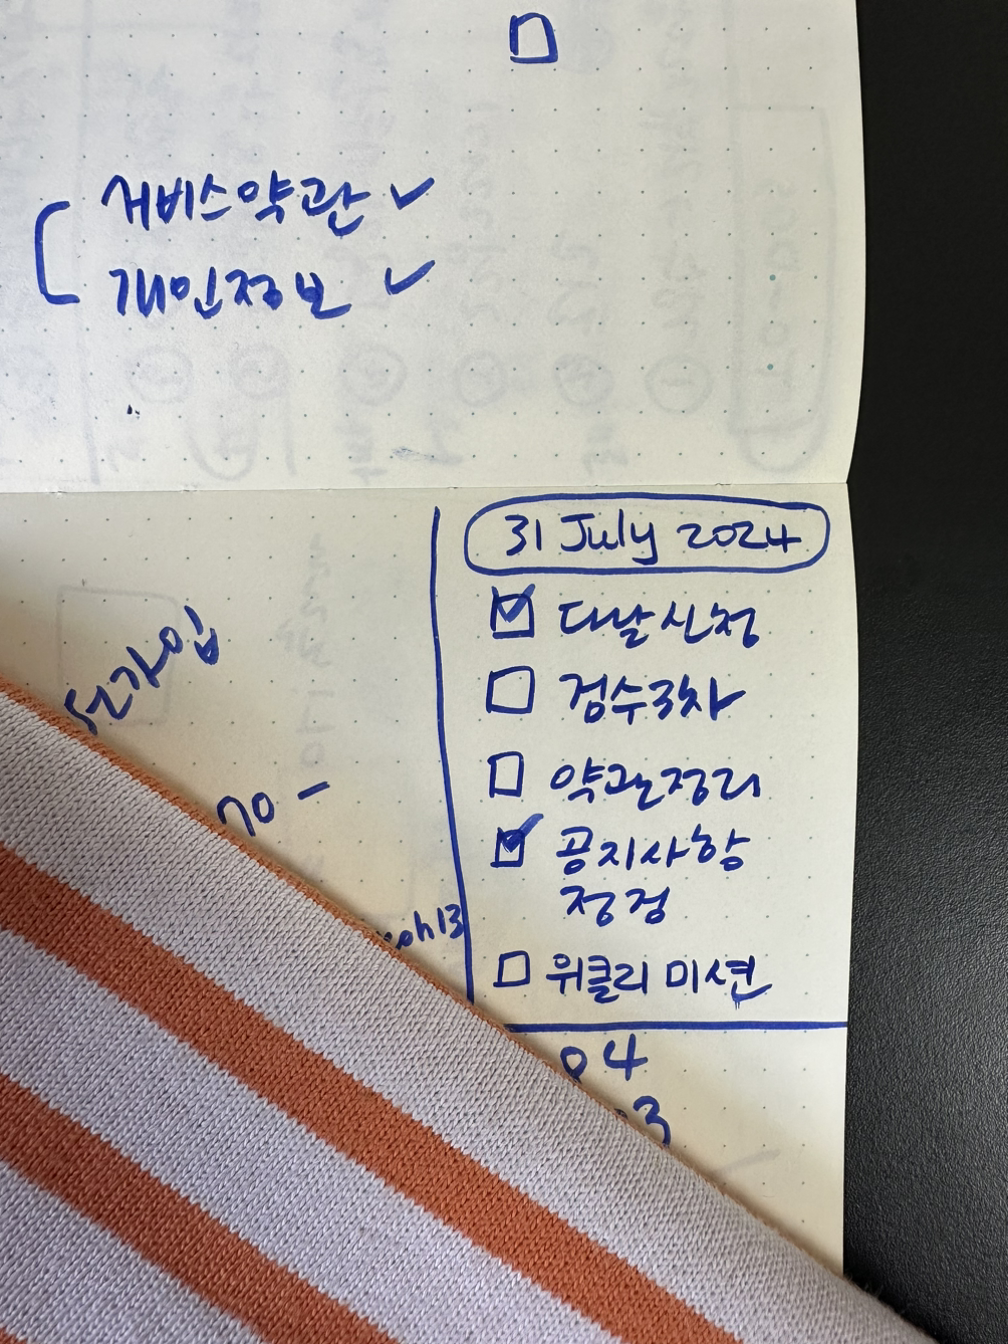 서비스약관 ✓
개인정보 ✓
31 July 2024
☑ 다날신청
☐ 검수3차
☐ 약관정리
☑ 공지사항
점검
☐ 위클리 미션
가입
04
3